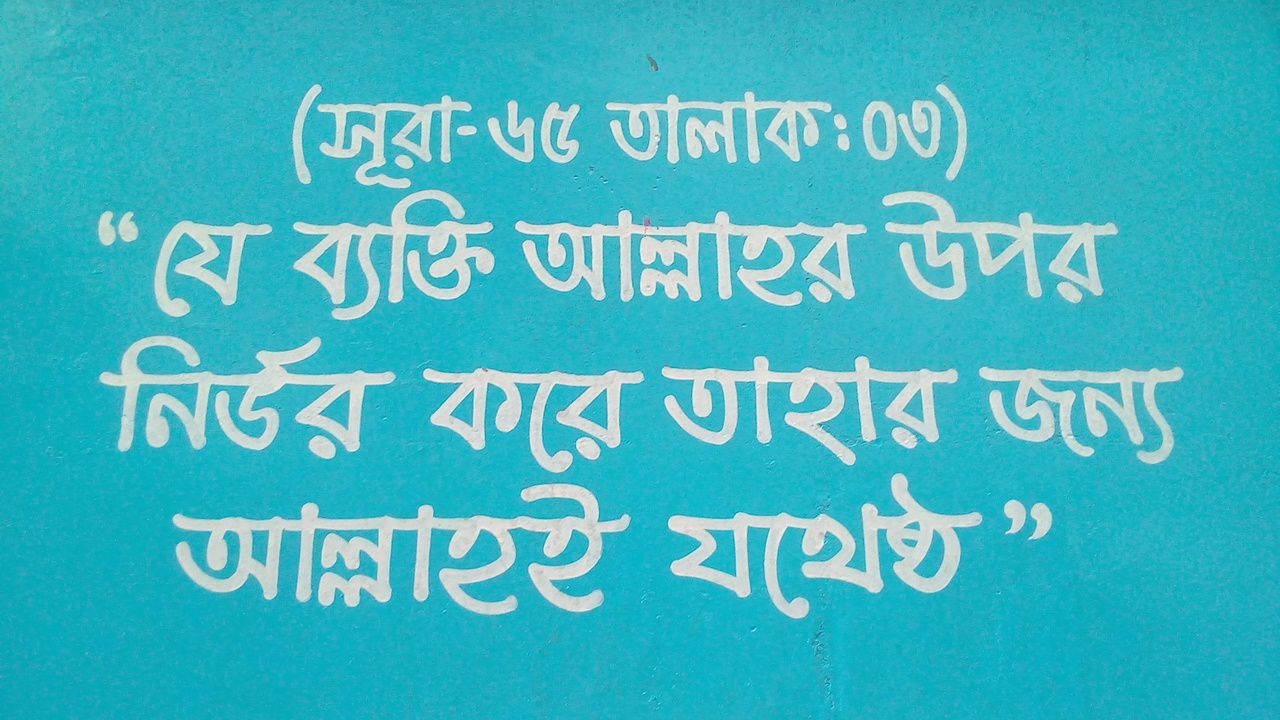 (সূরা-৬৫ তালাক:০৩)
“যে ব্যক্তি আল্লাহর উপর
নির্ভর করে তাহার জন্য
আল্লাহই যথেষ্ঠ”